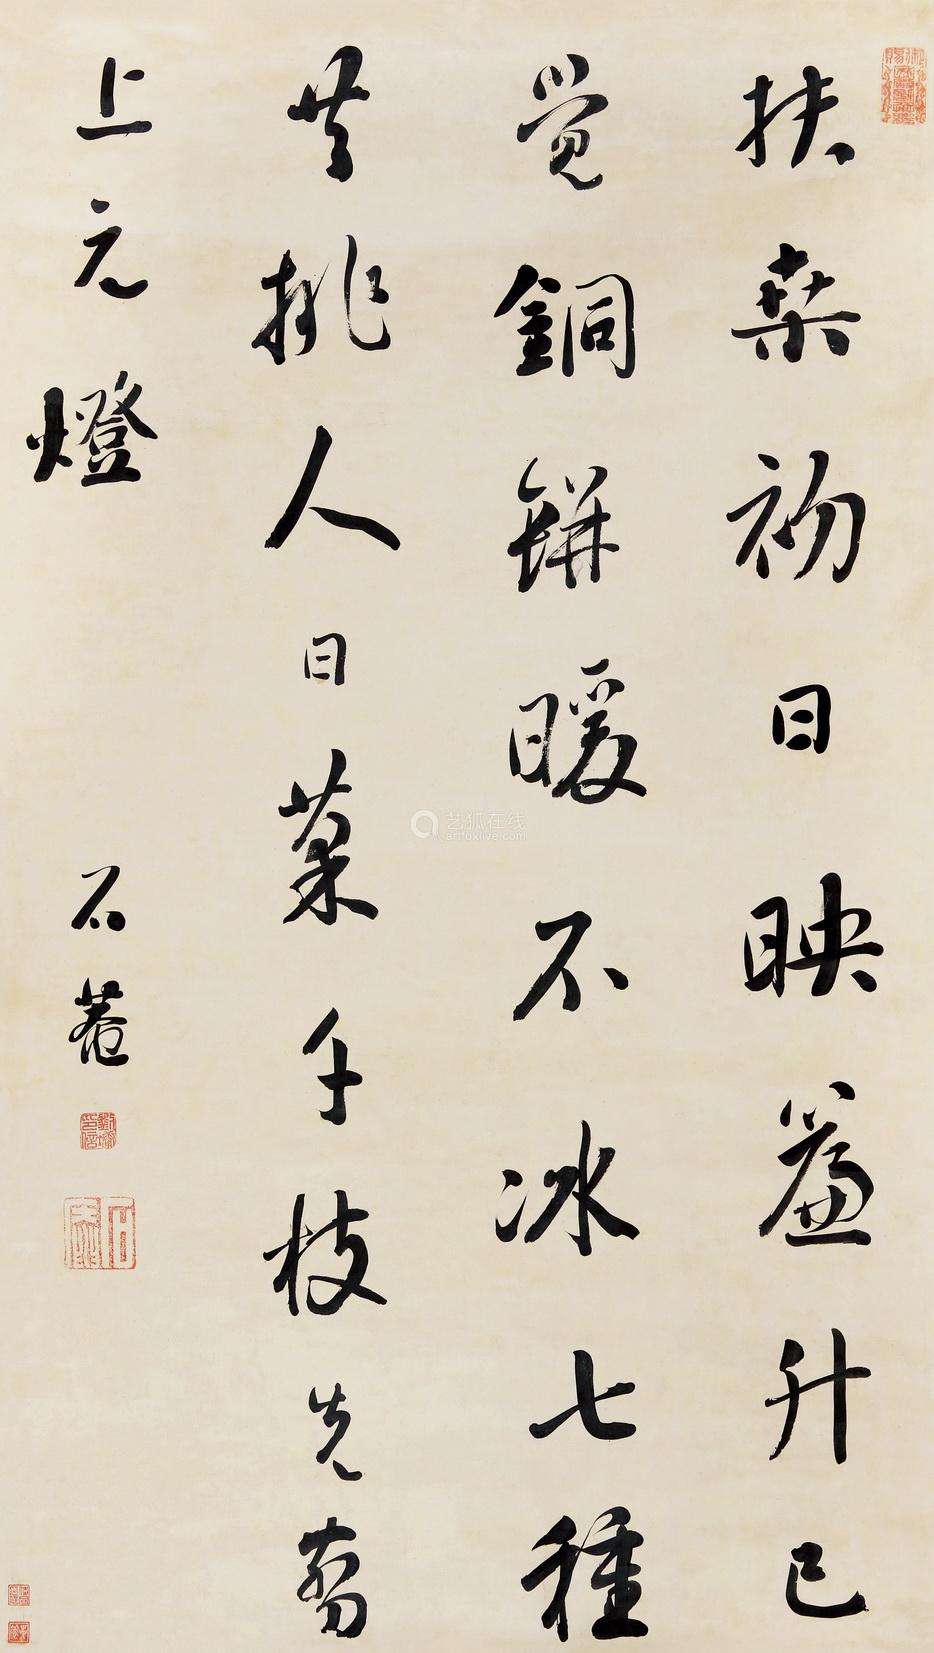 扶桑初日映簾升已
覺銅缾暖不冰七種
共挑人日菜千枝先剪
上元燈
石菴
劉墉印信
石菴
艺狐在线
artfoxlive.com